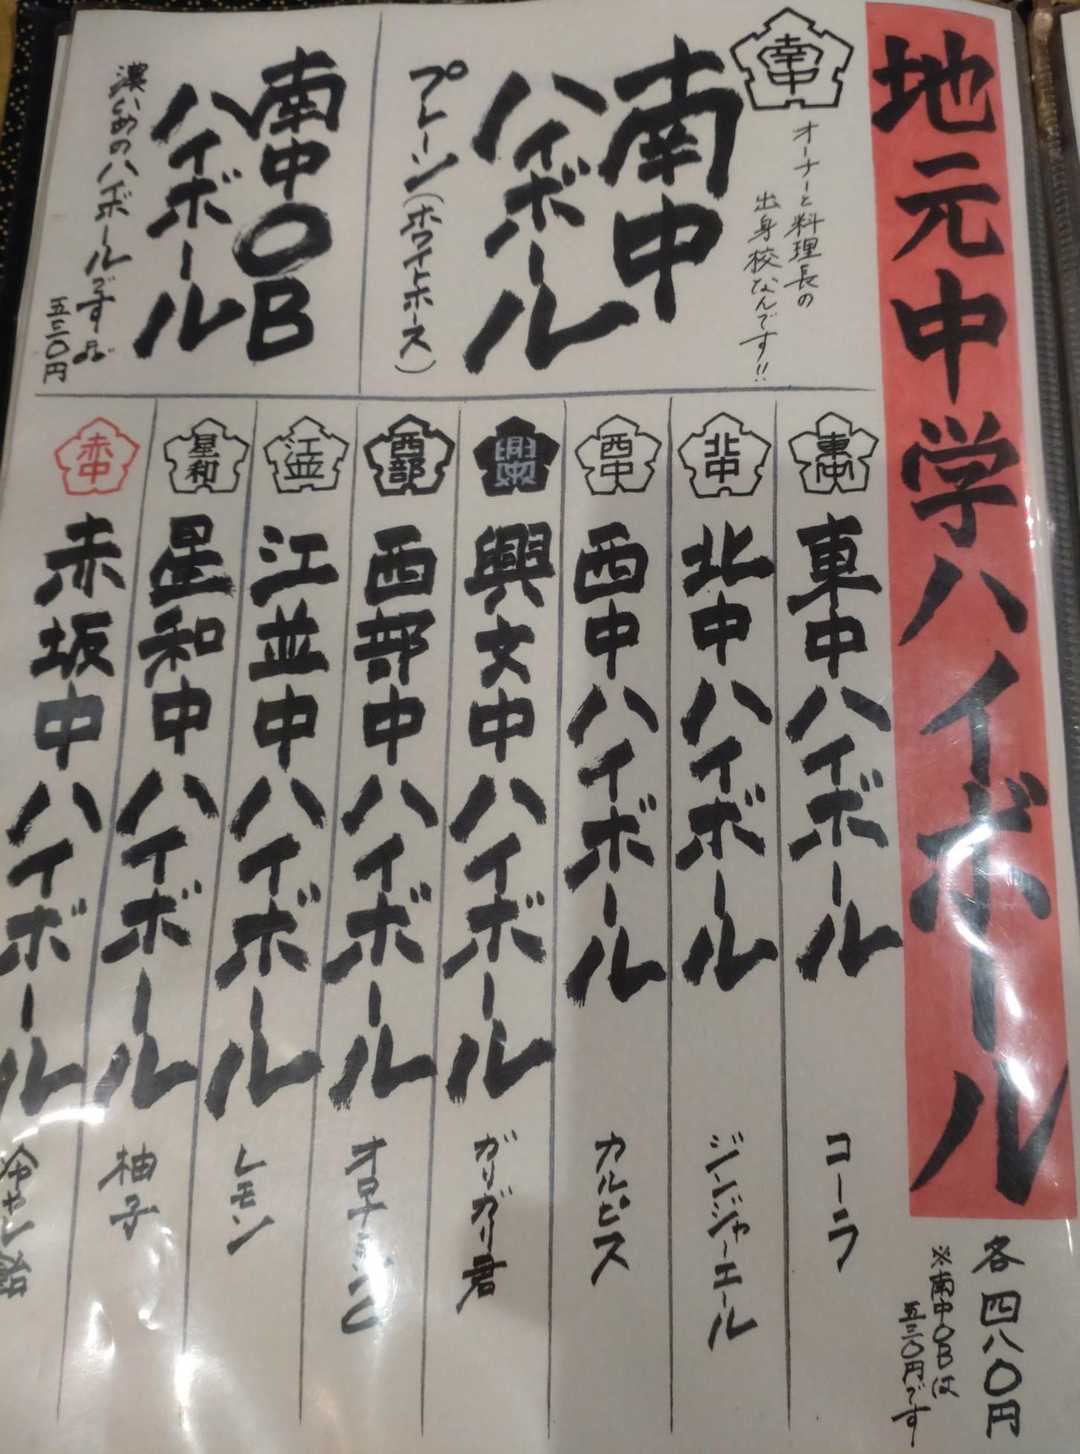 地元中学ハイボール
各四八〇円
※南中OBは
五三〇円です
オーナーと料理長の
出身校なんです!!
南中
ハイボール
プレーン(ホワイトホース)
南中OB
ハイボール
濃いめのハイボールです
五三〇円
東中
東中ハイボール
コーラ
北中
北中ハイボール
ジンジャーエール
西中
西中ハイボール
カルピス
興文中ハイボール
ガリガリ君
西部
西部中ハイボール
江並
江並中ハイボール
レモン
星和
星和中ハイボール
柚子
赤中
赤坂中ハイボール